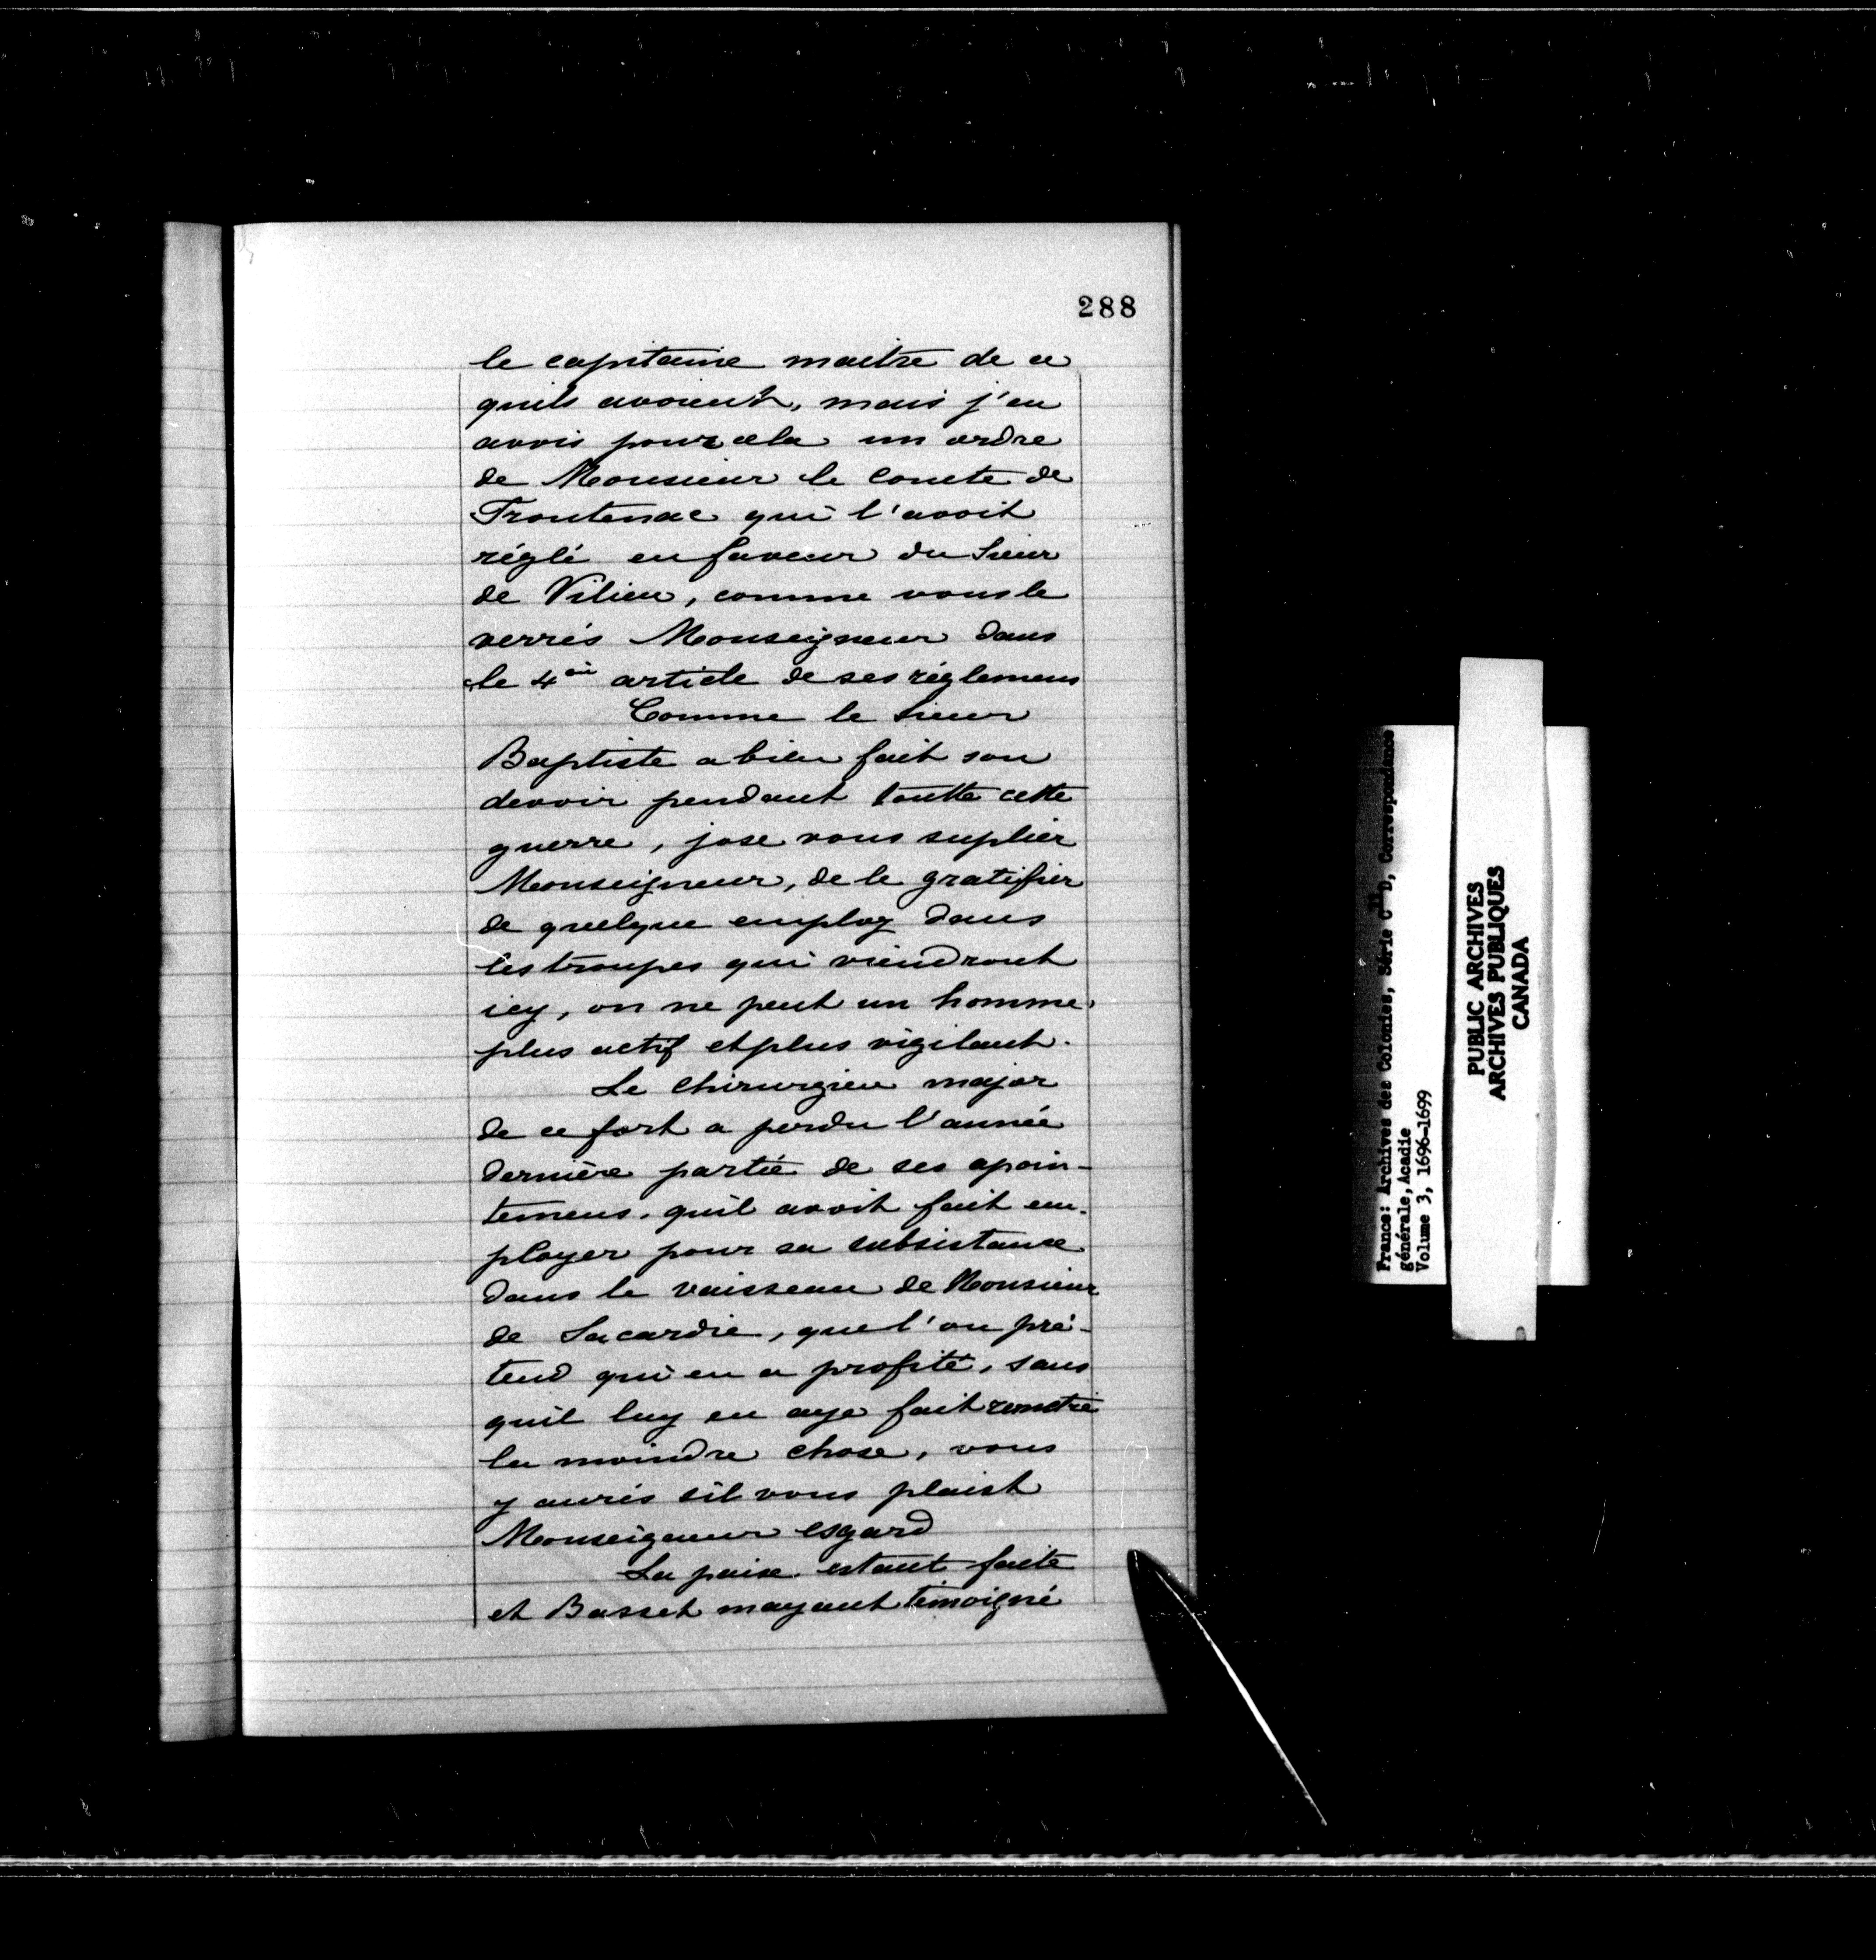 288
le capitaine maitre de ce
quils avoient, mais j'en
avois pour cela un ordre
de Monsieur le Comte de
Frontenac qui l'avoit
réglé en faveur du Sieur
de Vilieu, comme vous le
verrés Monseigneur dans
le 4e article de ses réglemens
Comme le Sieur
Baptiste a bien fait son
devoir pendant toutte cette
guerre, jose vous suplier
Monseigneur, de le gratifier
de quelque employ dans
les troupes qui viendront
icy, on ne peut un homme
plus actif et plus vigilant.
Le Chirurgien major
de ce fort a perdu l'année
dernière partie de ses apoin-
temens. quil avoit fait em-
ployer pour sa subsistance
dans le vaisseau de Monsieur
de Lacardie, que l'on pré-
tend qui en a profité, sans
quil luy en aye fait remetre
la moindre chose, vous
y aurés sil vous plaist
Monseigneur esgard
La paix estant faite
et Basset mayant témoigné
France: Archives des Colonies, Série C11D, Correspondance
générale, Acadie
Volume 3, 1696-1699
PUBLIC ARCHIVES
ARCHIVES PUBLIQUES
CANADA